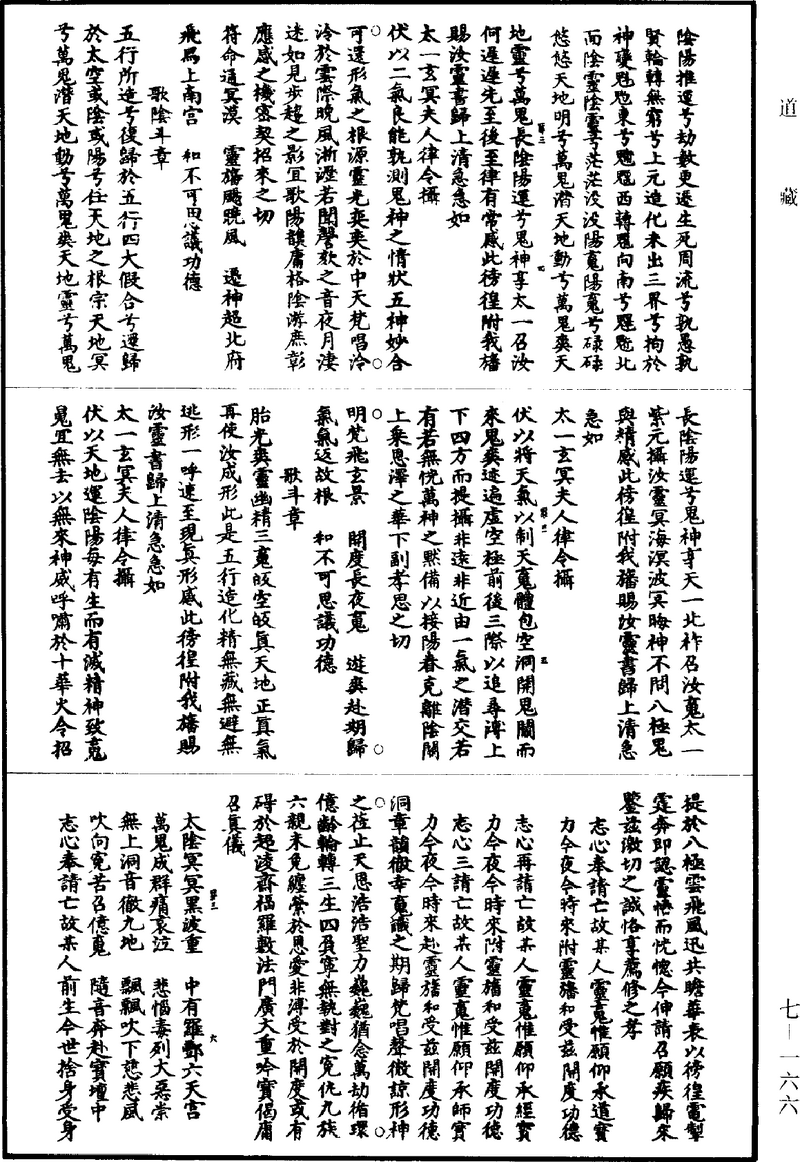 道藏
七—一六六
陰陽推運兮劫數更遷生死周流兮孰愚孰
賢輪轉無窮兮上元造化未出三界兮拘於
而陰靈陰靈兮茫茫没没陽䰟陽䰟兮碌碌
悠悠天地明兮萬鬼潛天地動兮萬鬼奭天
地靈兮萬鬼長陰陽運兮鬼神享太一召汝
何遲遲先至後至律有常感此徬徨附我旛
賜汝靈書歸上清急急如
太一玄冥夫人律令攝
伏以二氣良能孰測鬼神之情狀五神妙合
可還形氣之根源靈光奭奭於中天梵唱泠
泠於雲際晚風淅瀝若聞謦欬之音夜月淒
迷如見步趨之影宜歌陽韻庸格陰游庶彰
應感之機密契招來之切
符命通冥漠　靈旛颺晚風　遷神超北府
飛舄上南宫　和不可思議功德
歌陰斗章
五行所造兮復歸於五行四大假合兮還歸
於太空或陰或陽兮住天地之根宗天地冥
兮萬鬼潛天地動兮萬鬼奭天地靈兮萬鬼
長陰陽運兮鬼神享天一北祚召汝䰟太一
紫元攝汝靈冥海溟波冥晦神不問八極鬼
與精感此徬徨附我旛賜汝靈書歸上清急
急如
太一玄冥夫人律令攝
伏以將天氣以制天䰟體包空洞開鬼關而
來鬼奭迹遍虛空極前後三際以追尋溥上
下四方而提攝非遠非近由一氣之潛交若
有若無恍萬神之黙備以接陽春克離陰關
上乘恩澤之華下副孝思之切
明梵飛玄景　開度長夜䰟　遊爽赴期歸
氣氣返故根　和不可思議功德
歌斗章
胎光爽靈幽精三䰟皎空皎真天地正真氣
再使汝成形此是五行造化精無藏無避無
逃形一呼速至現真形感此徬徨附我旛賜
汝靈書歸上清急急如
太一玄冥夫人律令攝
伏以天地運陰陽每有生而有滅精神致䰟
䰟宜無去以無來神威呼嘯於十華火令招
提於八極雲飛風迅共瞻華表以徬徨電掣
霆奔即認靈旛而恍惚今伸請召願疾歸來
鑒兹激切之誠恪享薦修之孝
志心奉請亡故某人靈䰟惟願仰承道寶
力今夜今時來附靈旛和受兹開度功德
志心再請亡故某人靈䰟惟願仰承經寶
力今夜今時來附靈旛和受兹開度功德
志心三請亡故某人靈䰟惟願仰承師寶
力今夜今時來赴靈旛和受兹開度功德
洞章韻徹幸䰟識之期歸梵唱聲微諒形神
之莅止天恩浩浩聖力巍巍猶念萬劫循環
億齡輪轉三生四夤寧無執對之寃仇九族
六親未免纏縈於恩愛非溥受於開度或有
碍於超淩齋福羅敷法門廣大重吟寳偈庸
召真儀
太陰冥冥黑波重　中有羅酆六天宫
萬鬼成群痛哀泣　悲惱毒列大惡崇
無上洞音徹九地　飄飄吹下慈悲風
吹向寃苦召億䰟　隨音奔赴寳壇中
志心奉請亡故某人前生今世捨身受身